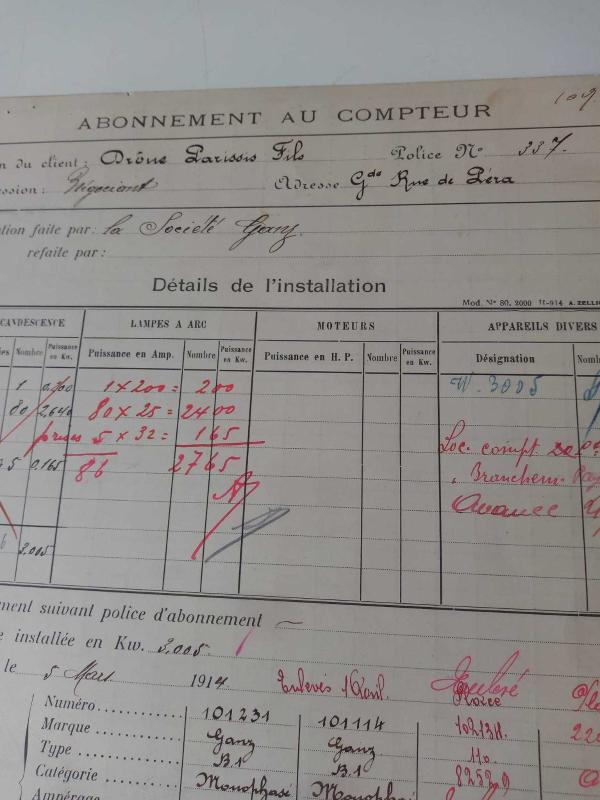 109.
ABONNEMENT AU COMPTEUR
n du client: Drône Larissis Fils Police No 337.
ession: Négociant Adresse Gde Rue de Péra
tion faite par: la Société Ganz.
refaite par:
Détails de l'installation
Mod. No 80, 2000 11-914 A. ZELLI
CANDESCENCE LAMPES A ARC MOTEURS APPAREILS DIVERS
Nombre Puissance en Kw. Puissance en Amp. Nombre Puissance en Kw. Puissance en H. P. Nombre Puissance en Kw. Désignation Nomb
1 0,200 1 x 200 = 200 W. 3005
80 2,640 80 x 25 = 2400
prises 5 x 32 = 165 Loc. compt.
5 0,165 86 2765 " Branchem. Pay
Avance
3.005
ment suivant police d'abonnement
e installée en Kw. 3.005
le 5 Mars 1914 Enlevés 1 Avril
Numéro 101231 101114
Marque Ganz Ganz
Type B.1 B.1 110.
Catégorie Monophasé Monophasé
Ampérage